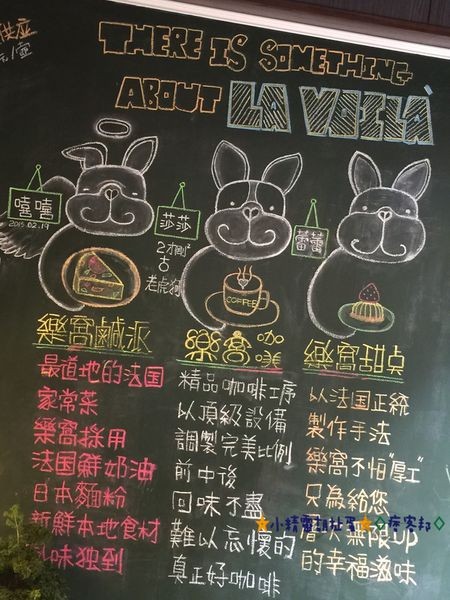 THERE IS SOMETHING
ABOUT LA VOILÀ
嘻嘻
2015.02.19
莎莎
2才剛
古
老虎狗
蕾蕾
COFFEE
樂窩鹹派
最道地的法国
家常菜
樂窩採用
法国鮮奶油
日本麵粉
新鮮本地食材
味独到
樂窩咖啡
精品咖啡工序
以頂級設備
調製完美比例
前中後
回味不盡
難以忘懷的
真正好咖啡
樂窩甜点
以法国正統
製作手法
樂窩不怕"厚工"
只為給您
層次無限up
的幸福滋味
痞客邦